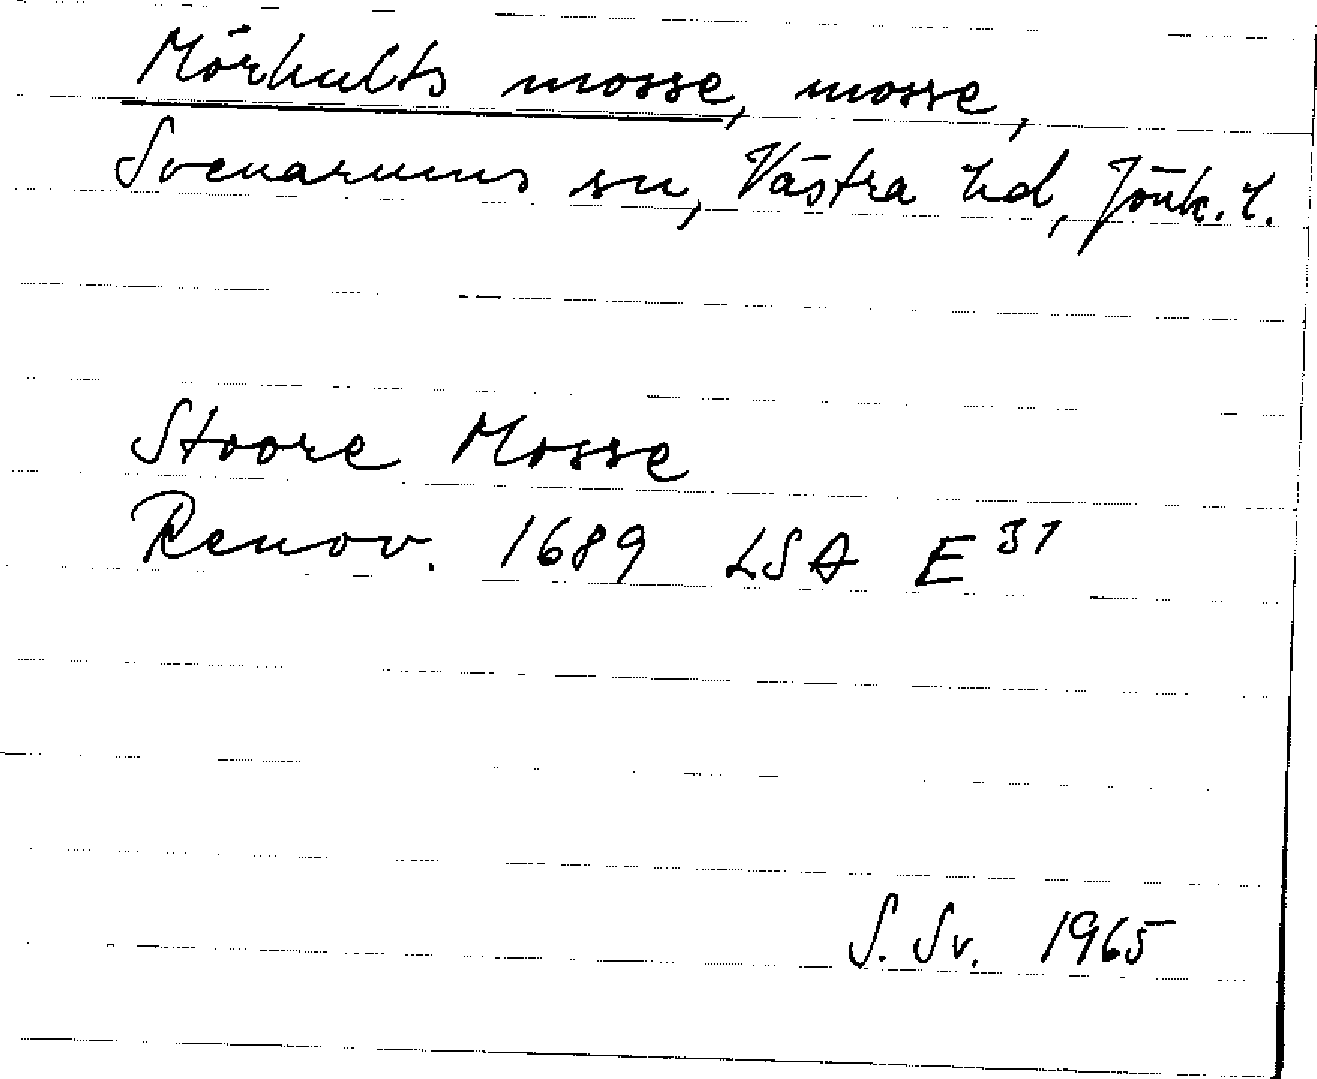 Mörhults mosse, mosse,
Svenarums sn, Västra hd, Jönk. l.
Stoore Mosse
Renov. 1689 LSA E 31
S. Sv. 1965